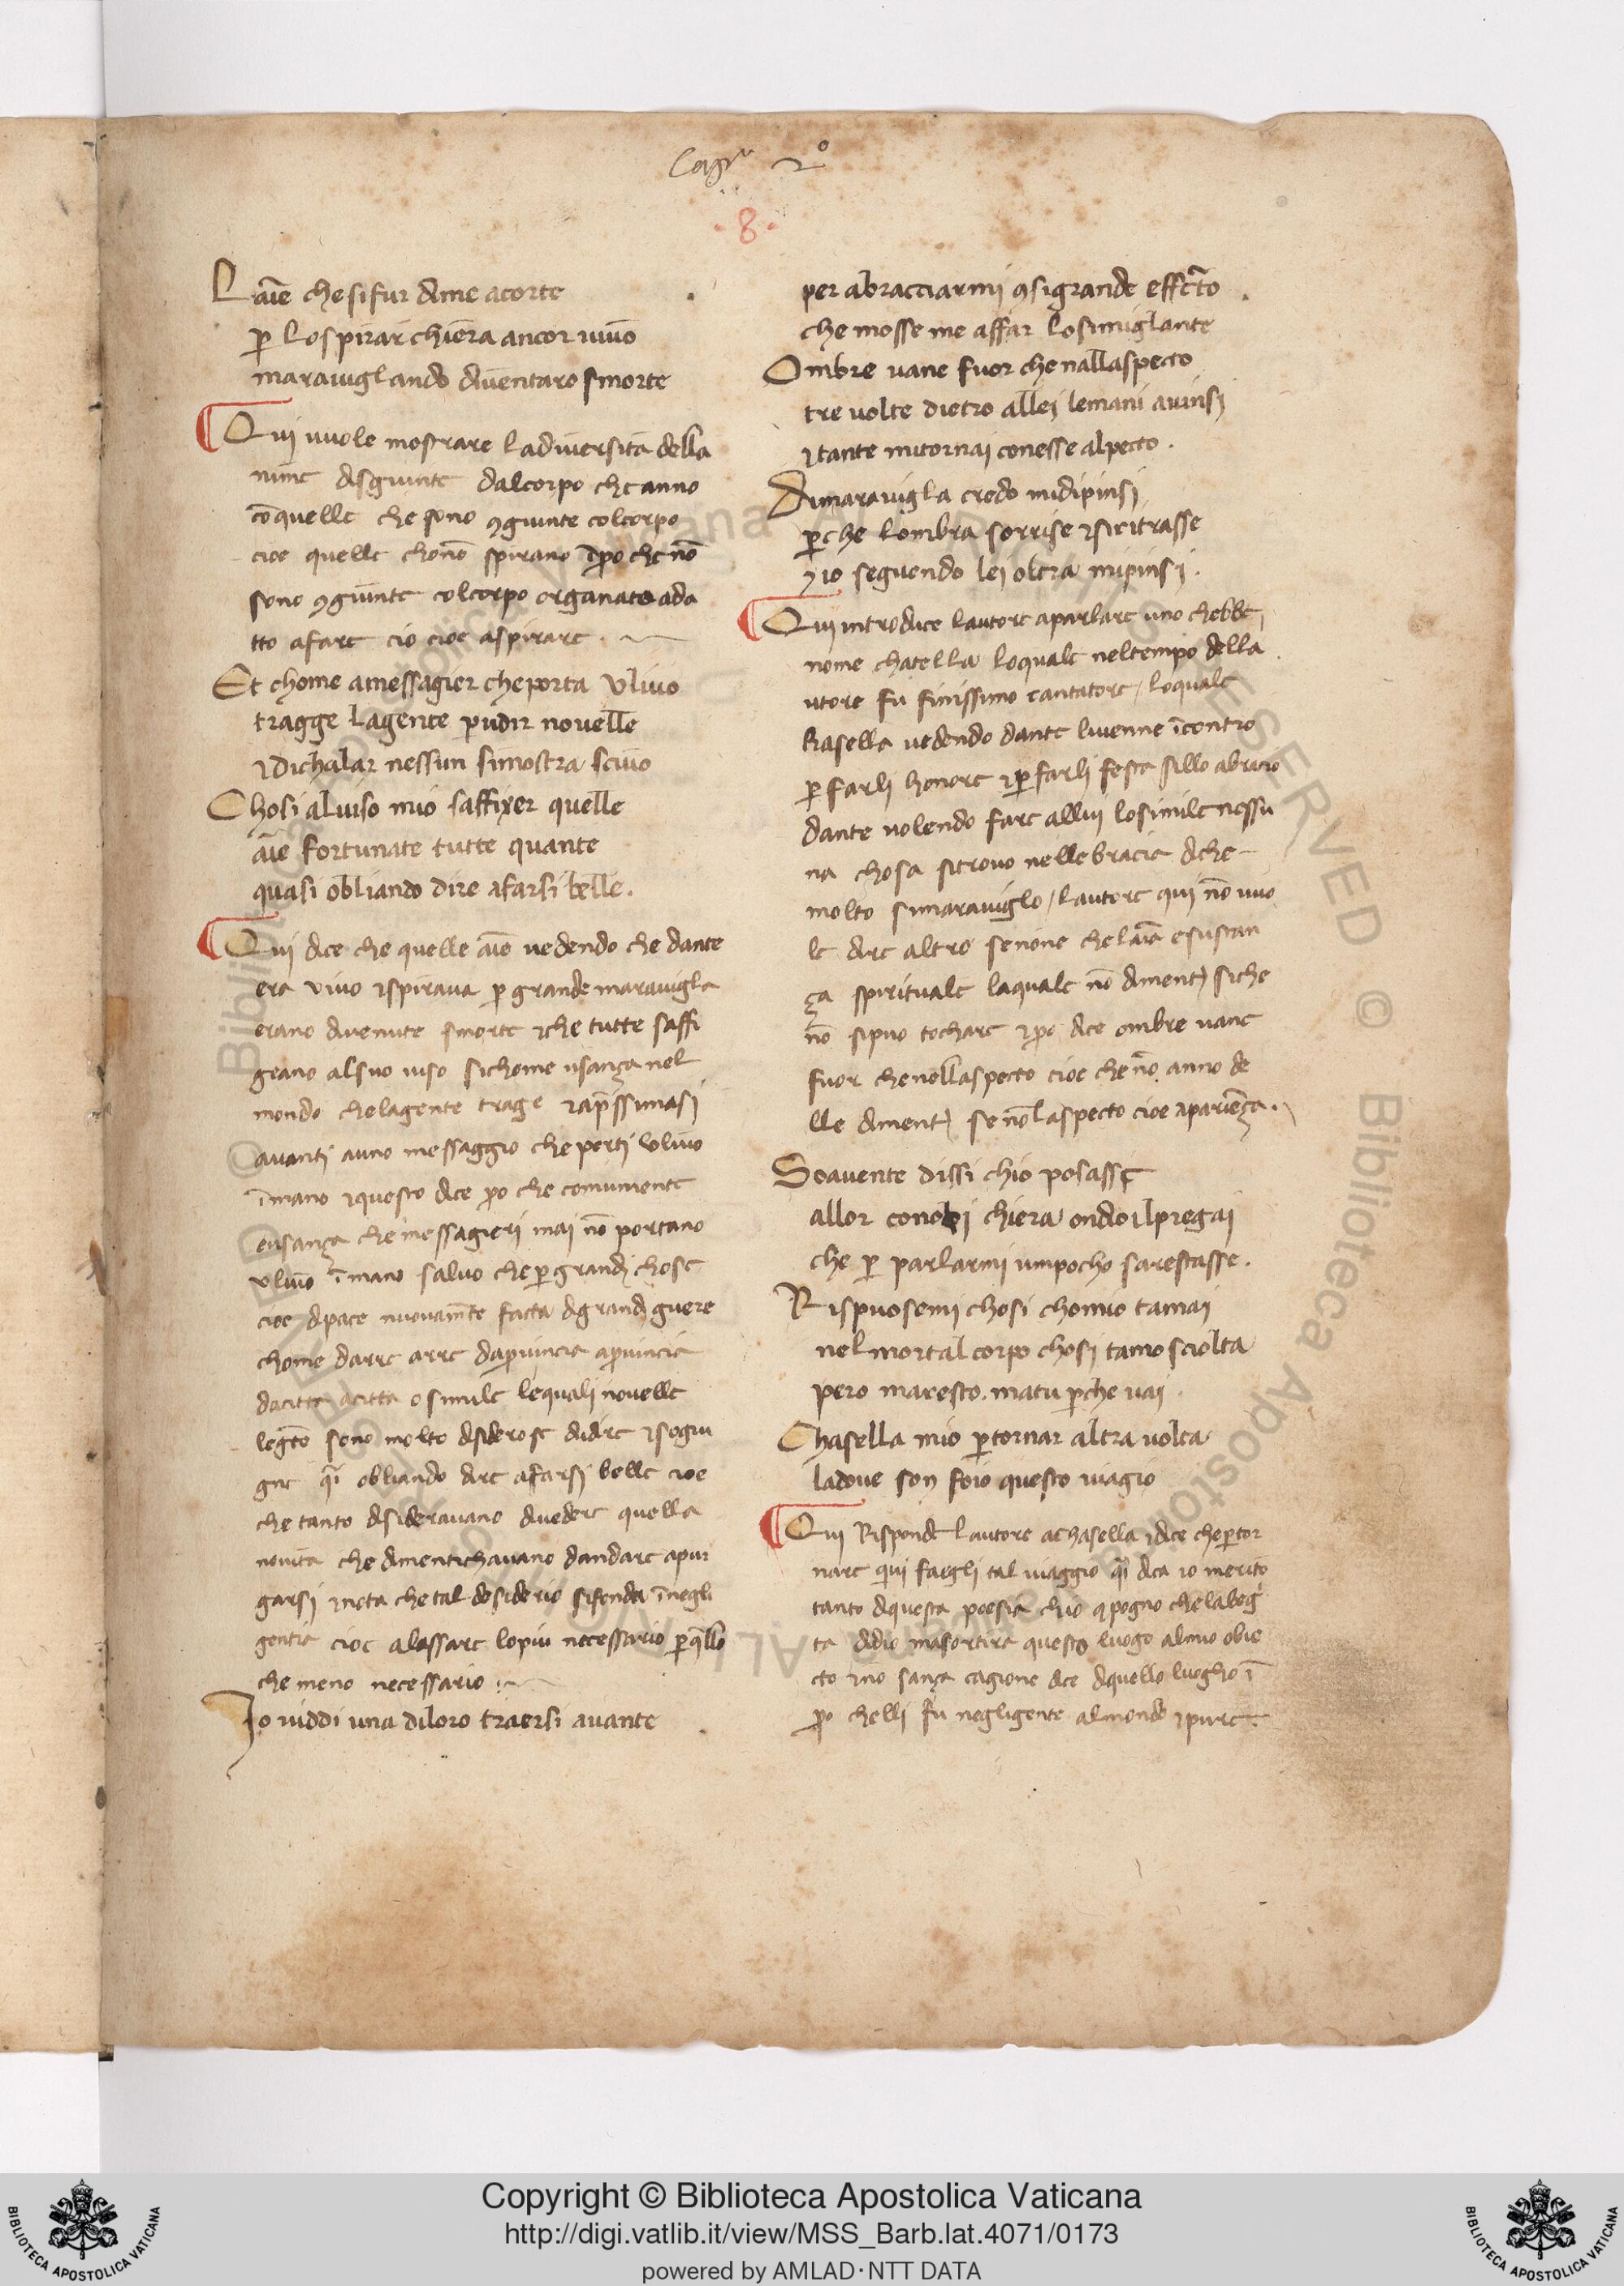 Capº 2º
·8·
L aīe che si fur di me acorte
ꝑ lo spirar chiera ancor vivo
maravigliando diventaro smorte
Qui vuole mostrare la diversita della
nime disgiunte dal corpo che anno
cō quelle che sono ꝯgiunte col corpo
cioe quelle che nō spirano īpo che nō
sono ꝯgiunte col corpo organato ada
tto a fare cio cioe aspirare
Et chome a messagier che porta ulivo
tragge la gente ꝑ udir novelle
⁊ di chalar nessun si mostra scivo
Chosi al viso mio saffixer quelle
aīe fortunate tutte quante
quasi obliando dire a farsi belle.
Qui dice che quelle aīe vedendo che dante
era vivo ⁊ spirava ꝑ grande maravigla
erano divenute smorte ⁊ che tutte saffi
geano al suo viso si chome usança nel
mondo che la gente trage
avanti a uno messaggio che porti ulivo
ī mano ⁊ questo dice ꝑo che comunmente
e usança che messagieri mai nō portano
ulivo ī mano salvo che ꝑ grandi chose
cioe di pace nuovam̄te facta di grandi guere
chome darre arre da ꝓvincia a ꝓvincia
da citta a citta o simile le quali novelle
sono molto disiderose dudire ⁊ sogiu
gne q̄i obliando dire a farsi belle cioe
che tanto disideravano di vedere quella
novita che dimentichavano dandare a pur
garsi ⁊ nota che tal desiderio si fonda ī negli
gentia cioe a lassare lo piu necessario ꝑ q̄llo
che meno necessario
Io viddi una di loro traersi avante
per abracciarmi ꝯ si grande effecto
che mosse me affar lo simiglante
Ombre vane fuor che nellaspecto
tre volte dietro allei le mani avinsi
⁊ tante mi tornai con esse al pecto.
Di maravigla credo mi dipinsi
ꝑche lombra sorrise ⁊ si ritrasse
⁊ io seguendo lei oltra mi pinsi.
Qui introduce lautore a parlare uno chebbe
nome chasella lo quale nel tempo della
utore fu finissimo cantatore / lo quale
Kasella vedendo dante li venne īcontro
ꝑ farli honore ⁊ ꝑ farli festa si llo abracio
dante volendo fare allui lo simile nessu
na chosa si trovo nelle bracia di che
molto si maraviglo / lautore qui nō vuo
le dire altro se none che laīa e sustan
ça spirituale la quale nō si che
nō si puo tochare ⁊ ꝑo dice ombre vane
fuor che nellaspecto cioe che nō anno de
lle se nō laspecto cioe apparēça.
Soavente dissi chio posasse
allor conobi chiera ondio il pregai
che ꝑ parlarmi un pocho sarestasse.
Rispuosemi chosi chomio tamai
nel mortal corpo chosi tamo sciolta
pero maresto. ma tu ꝑche vai.
Chasella mio ꝑ tornar altra volta
la dove son foio questo viagio
Qui Risponde lautore a chasella ⁊ dice che ꝑ tor
nare qui fa egli tal viaggio q̄i dica io merito
tanto di questa poesia chio ꝯpogno
ta didio questo luogo al mio obie
cto ⁊ nō sança cagione dice di quello luogho ī
ꝑo chelli fu negligente al mondo ⁊ pure.
Copyright © Biblioteca Apostolica Vaticana
http://digi.vatlib.it/view/MSS_Barb.lat.4071/0173
powered by AMLAD·NTT DATA
BIBLIOTECA APOSTOLICA VATICANA
BIBLIOTECA APOSTOLICA VATICANA